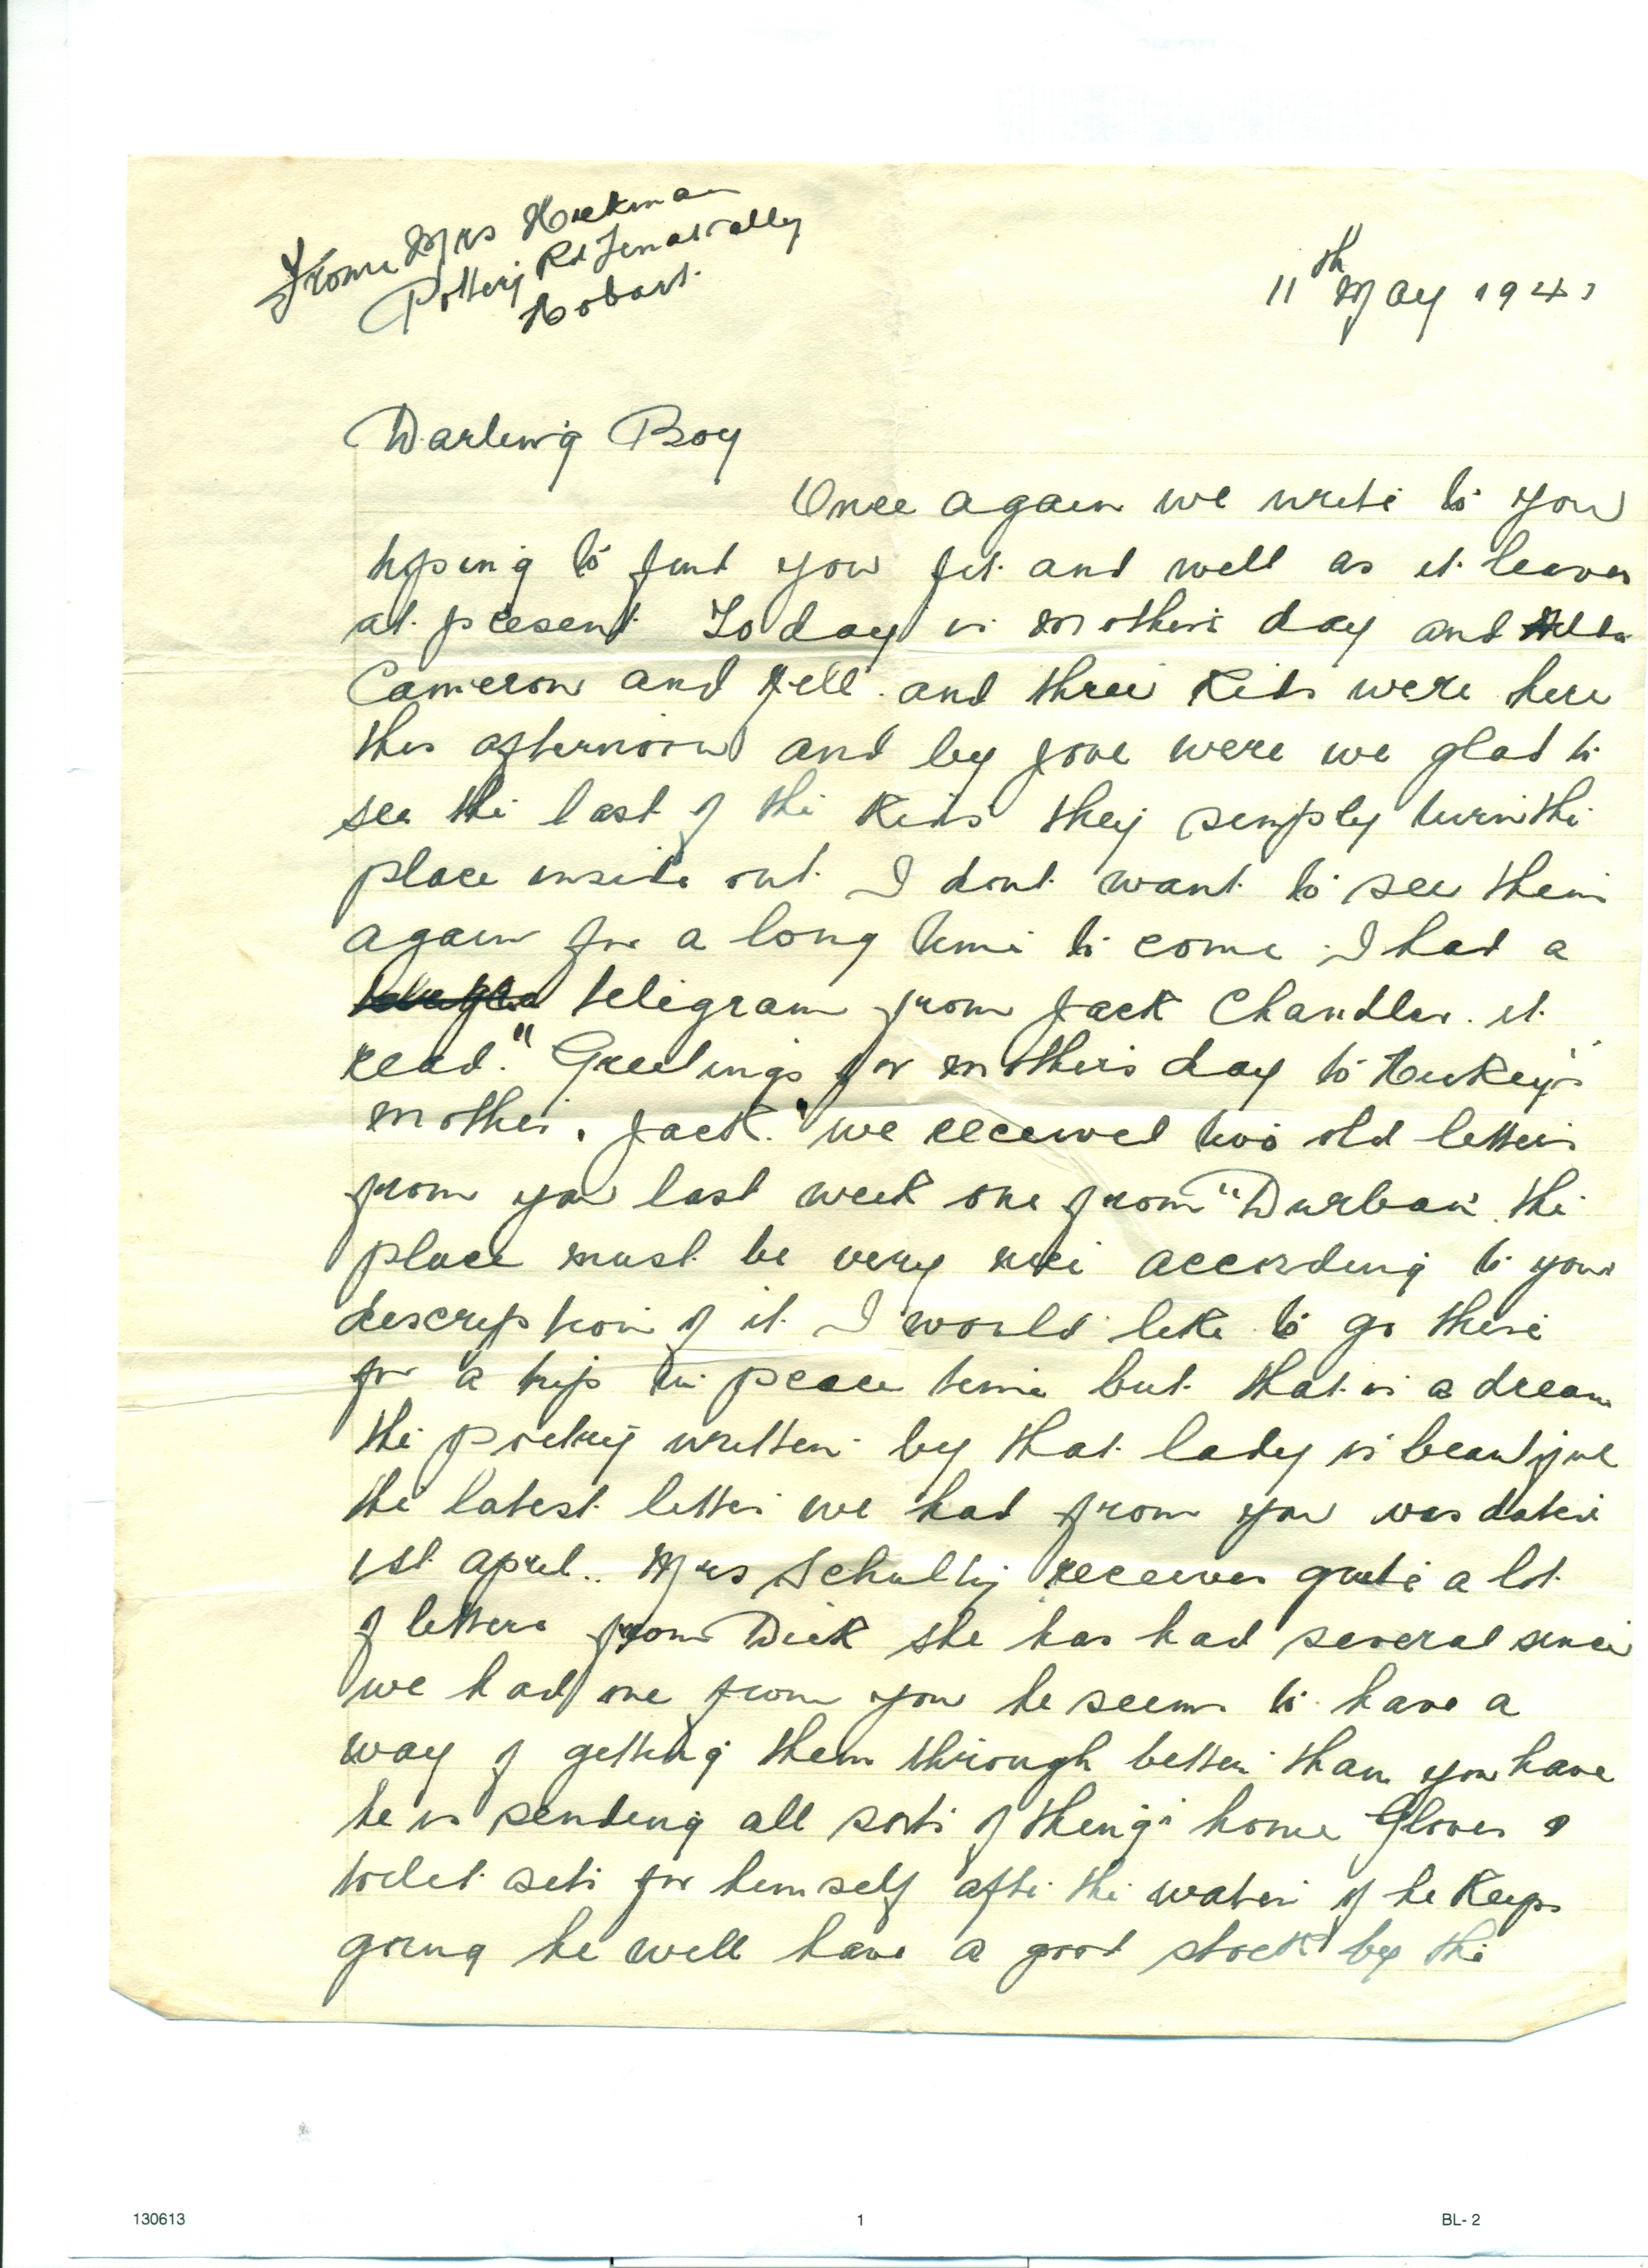 From Mrs Hickman
Pottery Rd Lenah Valley
Hobart.
11th May 1941
Darling Boy
Once again we write to you
hoping to find you fit and well as it leaves
at present Today is mothers day and
Cameron and Nell and three Kids were here
this afternoon and by jove were we glad to
see the last of the Kids they simply turn the
place inside out I dont want to see them
again for a long time to come I had a
teligram from Jack Chandler. it
read. "Greetings for mothers day to Hickey's
mother. Jack." we received two old letters
from you last week one from "Durban" the
place must be very nice according to your
description of it I would like to go there
for a trip in peace time but that is a dream
the poetry written by that lady is beautiful
the latest letter we had from you was dated
1st april.. Mrs receives quite a lot
of letters from Dick she has had several since
we had one from you he seems to have a
way of getting them through better than you have
he is sending all sorts of things home Gloves &
toilet sets for himself after the water if he Keeps
going he will have a good stock by the
130613
1
BL- 2